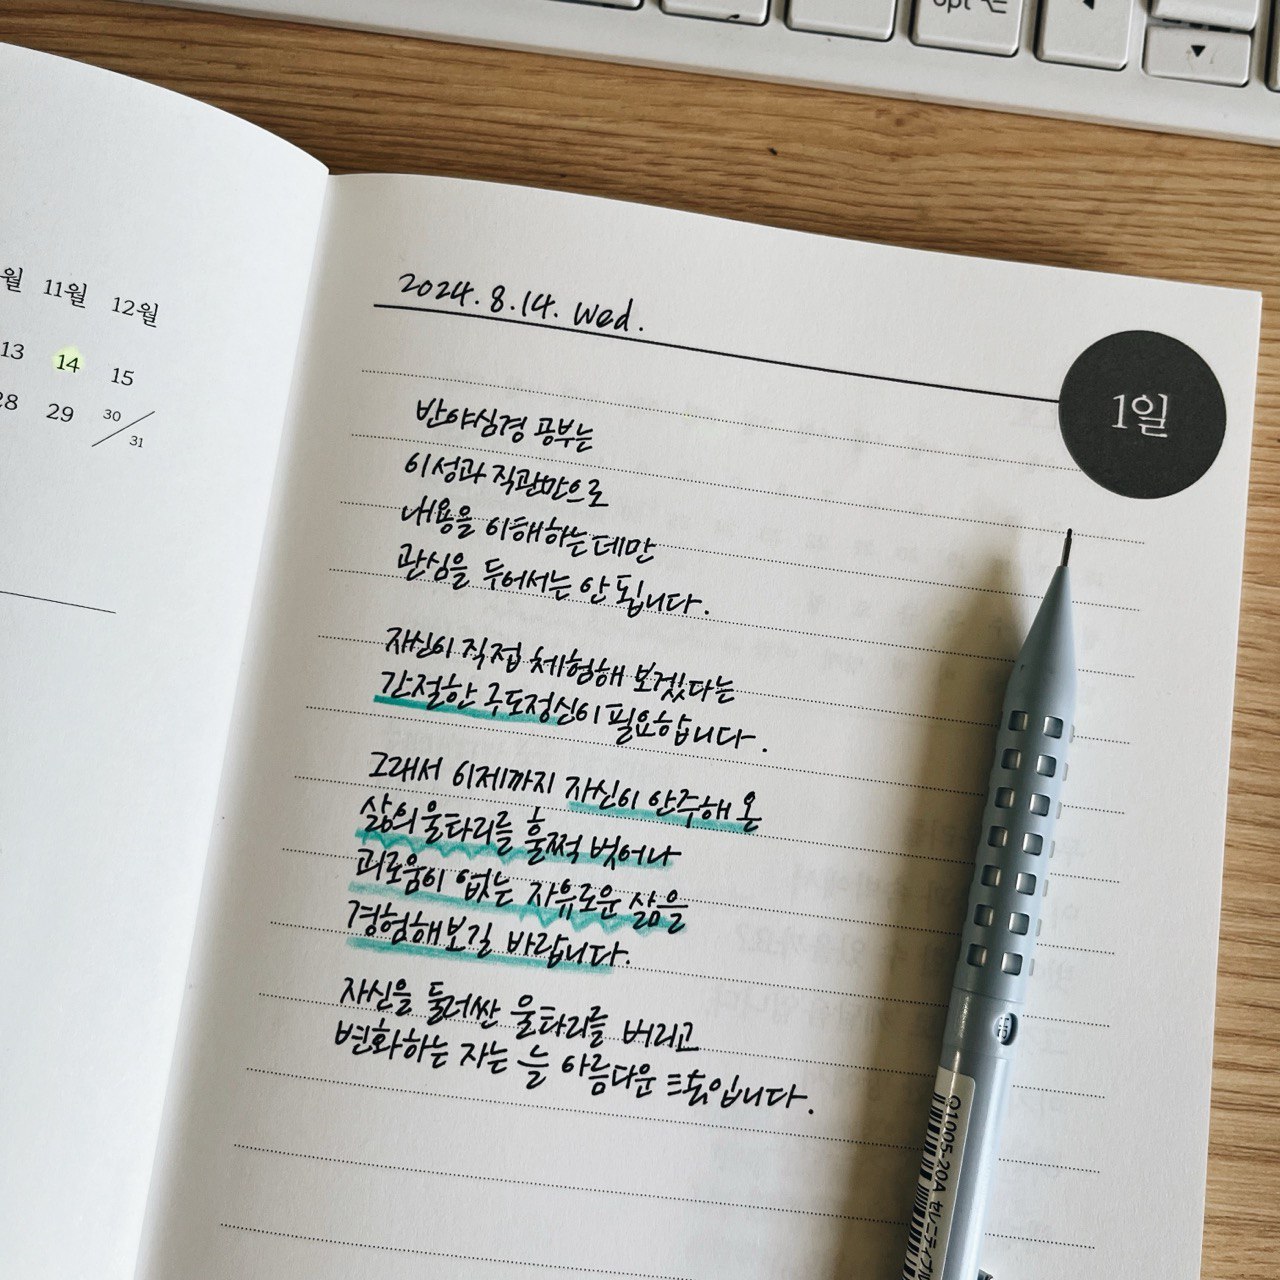 opt
월 11월 12월
13 14 15
28 29 30/31
2024. 8. 14. Wed.
1일
반야심경 공부는
이성과 직관만으로
내용을 이해하는데만
관심을 두어서는 안 됩니다.
자신이 직접 체험해 보겠다는
간절한 구도정신이 필요합니다.
그래서 이제까지 자신이 안주해 온
삶의 울타리를 훌쩍 벗어나
괴로움이 없는 자유로운 삶을
경험해보길 바랍니다.
자신을 둘러싼 울타리를 버리고
변화하는 자는 늘 아름다운 입니다.
Q1005-20A セレニティブル